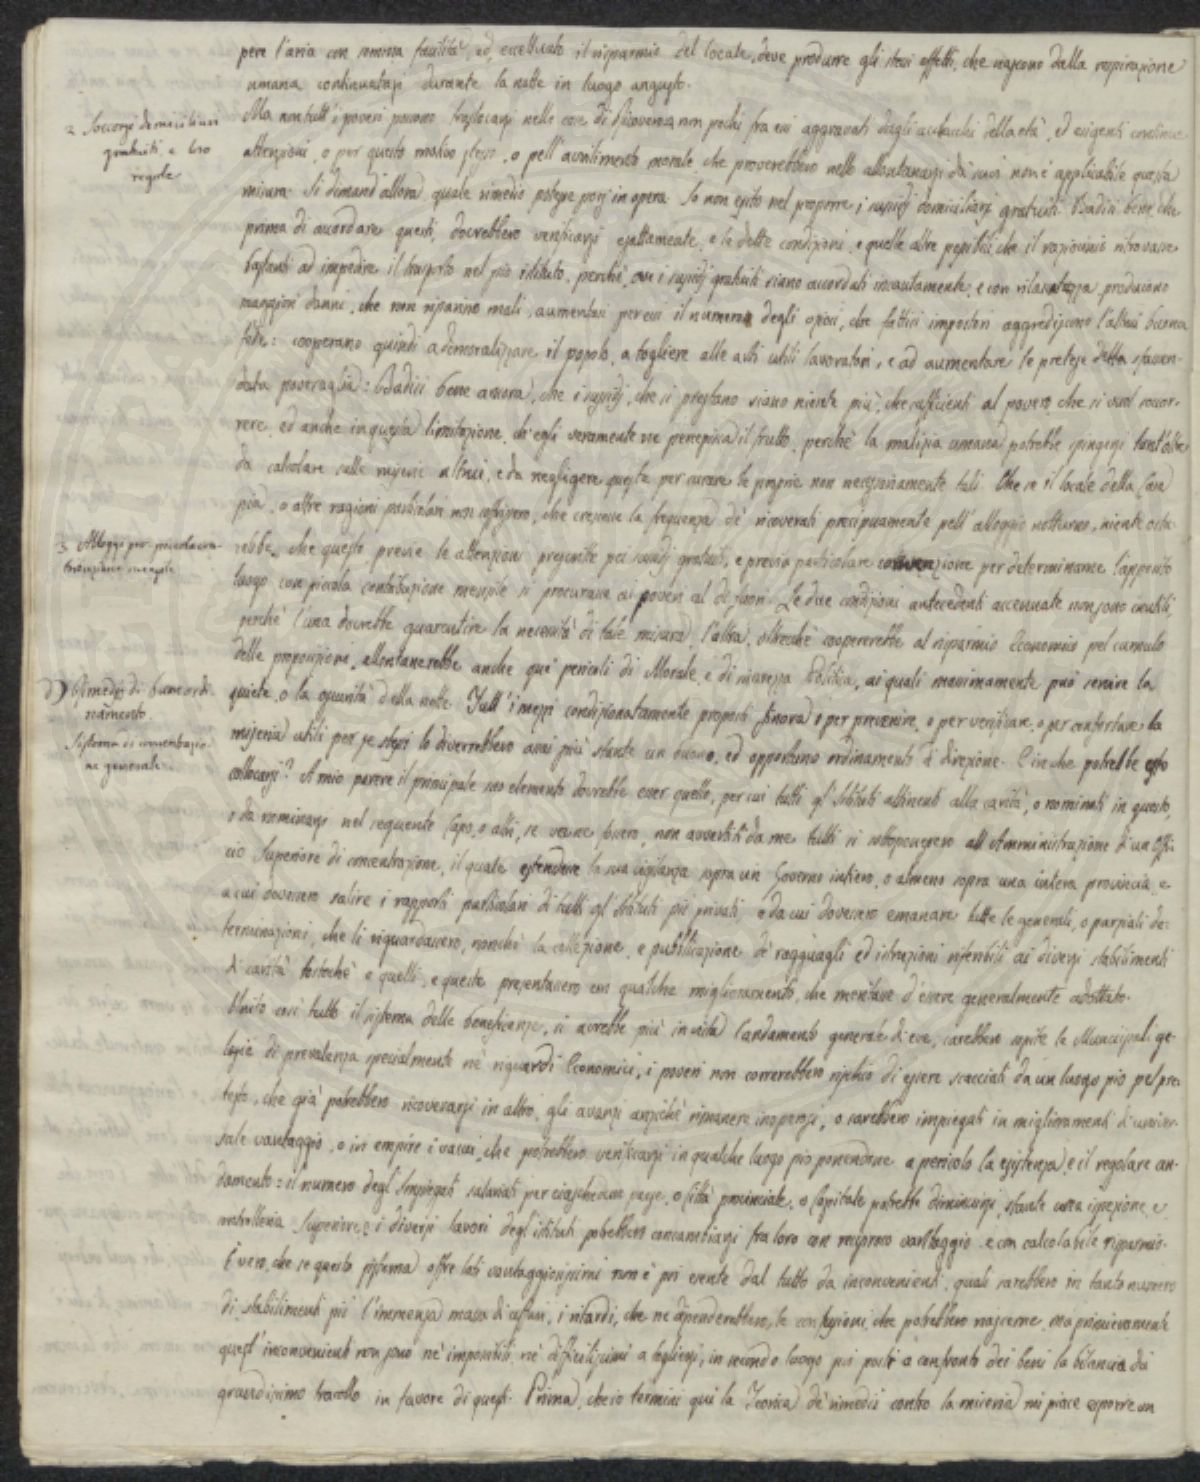 pere l'aria con somma facilità, ed eccettuato il risparmio del locale, deve produrre gli stessi effetti, che nascono dalla respirazione
umana continuatasi durante la notte in luogo angusto.
2. Soccorsi domiciliari
gratuiti e loro
regole
Ma non tutt'i poveri possono traslocarsi nelle case di Ricovero, non pochi fra essi aggravati dagli acciacchi della età, ed esigenti continue
attenzioni, o per questo motivo stesso, o pell'avvilimento morale, che proverebbero nello allontanarsi da' suoi non è applicabile questa
misura. Si domand'allora quale rimedio potesse porsi in opera. Io non esito nel proporre i sussidj domiciliarj gratuiti. Badisi bene che
prima di accordare questi, dovrebbero verificarsi esattamente, e le dette condizioni e quelle altre possibili, che il raziocinio ritrovasse
bastanti ad impedire il trasporto nel pio istituto, perchè, ove i sussidj gratuiti siano accordati incautamente, e con rilasatezza, producono
maggiori danni, che non risparino mali, aumentasi per essi il numero degli oziosi, che fattisi impostori aggrediscono l'altrui buona
fede: cooperano quindi a demoralizzare il popolo, a togliere alle arti utili lavoratori, e ad aumentare le pretese della sfaccen-
data poveraglia: Badisi bene ancora, che i sussidj, che si prestano siano niente più, che sufficienti al povero, che si vuol soccor-
rere, ed anche in questa limitazione, ch'egli veramente ne percepisca il frutto, perchè la malizia umana potrebbe spingersi tant'oltre
da calcolare sulle miserie altrui, e da negligere queste per curare le proprie non necessariamente tali. Che se il locale della Casa
pia, o altre ragioni particolari non soffrissero, che crescesse la frequenza de' ricoverati precipuamente pell'alloggio notturno, niente osta-
3. Alloggi per piccola con-
tribuzione mensile
rebbe, che questo, previe le attenzioni prescritte pei sussidj gratuiti, e previa particolare convenzione per determinarne l'apposito
luogo con piccola contribuzione mensile si procurasse ai poveri al di fuori. Le due condizioni antecedenti accennate non sono inutili,
perchè l'una dovrebbe guarentire la necessità di tale misura, l'altra, oltrechè coopererebbe al risparmio Economico pel cumulo
delle proporzioni, allontanerebbe anche que' pericoli di Morale, e di sicurezza Politica, ai quali massimamente può servire la
D) Rimedj di buon ordi-
namento.
Sistema di concentrazio-
ne generale.
quiete, o la oscurità della notte. Tutt'i mezzi condizionatamente proposti finora o per prevenire, o per verificare, o per confortare la
miseria utili per se stessi lo diverrebbero assai più stante un buono, ed opportuno ordinamento di direzione. E in che potrebbe esso
collocarsi? A mio parere il principale suo elemento dovrebbe esser quello, per cui tutti gl'Istituti attinenti alla carità, o nominati in questo,
o da nominarsi nel seguente Capo, o altri, se ve ne fossero, non avvertiti da me tutti si sottoponessero all'Amministrazione di un Offi-
cio Superiore di concentrazione, il quale estendesse la sua vigilanza sopra un Governo intiero, o almeno sopra una intera provincia, e
a cui dovessero salire i rapporti particolari di tutti gl'Istituti pii privati, e da cui dovessero emanare tutte le generali, o parziali de-
terminazioni, che li riguardassero, nonchè la collezione, e pubblicazione de' ragguagli ed istruzioni riferibili ai diversi stabilimenti
di carità tostochè e quelli, e queste presentassero un qualche miglioramento, che meritasse d'essere generalmente adottato.
Unito così tutto il sistema delle beneficenze, si avrebbe più in vista l'andamento generale di esse, sarebbero sopite le Municipali ge-
losie di prevalenza specialmente ne' riguardi Economici, i poveri non correrebbero rischio di essere scacciati da un luogo pio pel pre-
testo, che già potrebbero ricoverarsi in altro, gli avanzi anzichè rimanere inoperosi, o sarebbero impiegati in miglioramenti di univer-
sale vantaggio, o in empire i vacui, che potrebbero verificarsi in qualche luogo pio ponendone a pericolo la esistenza, e il regolare an-
damento: il numero degl'Impiegati salariati per ciascheduno paese, o Città provinciale, o Capitale potrebbe diminuirsi, stante una ispezione, e
controlleria Superiore, e i diversi lavori degl'istituti potrebbero concambiarsi fra loro con reciproco vantaggio, e con calcolabile risparmio.
È vero, che se questo sistema offre lati vantaggiosissimi non è poi esente dal tutto da inconvenienti, quali sarebbero in tanto numero
di stabilimenti pii l'immensa massa di affari, i ritardi, che ne dipenderebbero, le confusioni, che potrebbero nascerne, ma primieramente
quest'inconvenienti non sono nè impossibili, nè difficilissimi a togliersi, in secondo luogo poi posti a confronto dei beni la bilancia dà
grandissimo tracollo in favore di questi. Prima, che io termini qui la Teorica de' rimedii contro la miseria mi piace esporre un